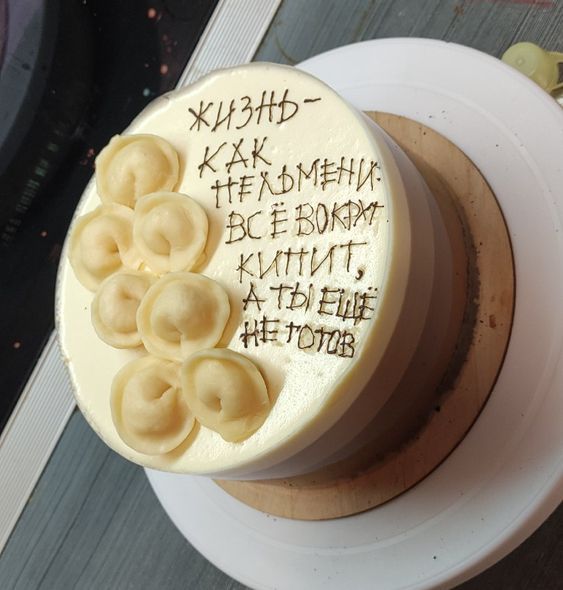 ЖИЗНЬ-
КАК
ПЕЛЬМЕНИ:
ВСЁ ВОКРУГ
КИПИТ,
А ТЫ ЕЩЁ
НЕ ГОТОВ